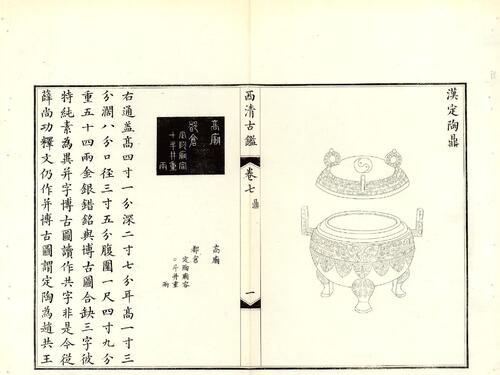 漢定陶鼎
西清古鑑
卷七
鼎
一
高廟
都倉
高廟
都倉
定陶廟容
○斗并重
兩
右通蓋高四寸一分深二寸七分耳高一寸三
分濶八分口徑三寸五分腹圍一尺四寸九分
重五十四兩金銀錯銘與博古圖合缺三字彼
特純素為異并字博古圖讀作共字非是今從
薛尚功釋文仍作并博古圖謂定陶為趙共王